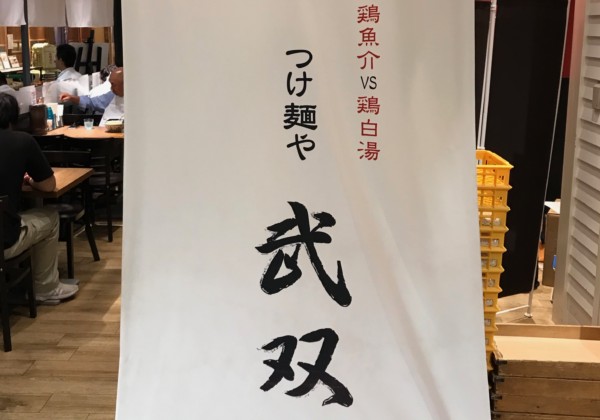 鶏魚介VS鶏白湯
つけ麺や
武双